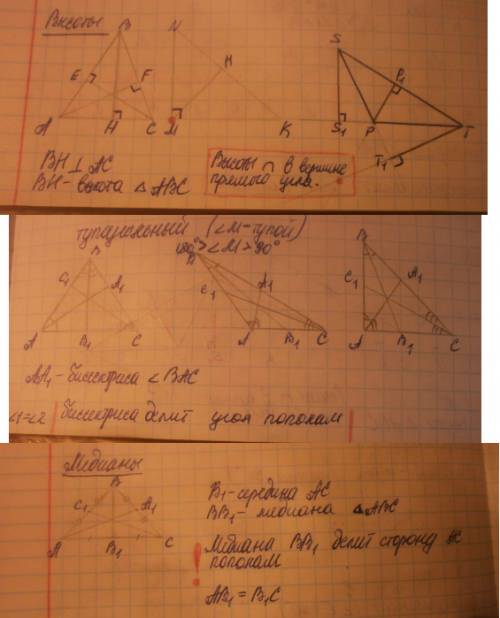 Высоты
B N S
E F H P₁
A H C M K S₁ P T
T₁
BH ⊥ AC
BH - высота △ ABC
Высоты ∩ в вершине
прямого угла.
тупоугольный (∠M - тупой)
180° > ∠M > 90°
B B B
C₁ A₁ C₁ A₁ C₁ A₁
A B₁ C A B₁ C A B₁ C
AA₁ - биссектриса ∠BAC
∠1=∠2 биссектриса делит угол пополам
Медианы
B
C₁ A₁
A B₁ C
B₁ - середина AC
BB₁ - медиана △ ABC
! Медиана BB₁ делит сторону AC
пополам
AB₁ = B₁C